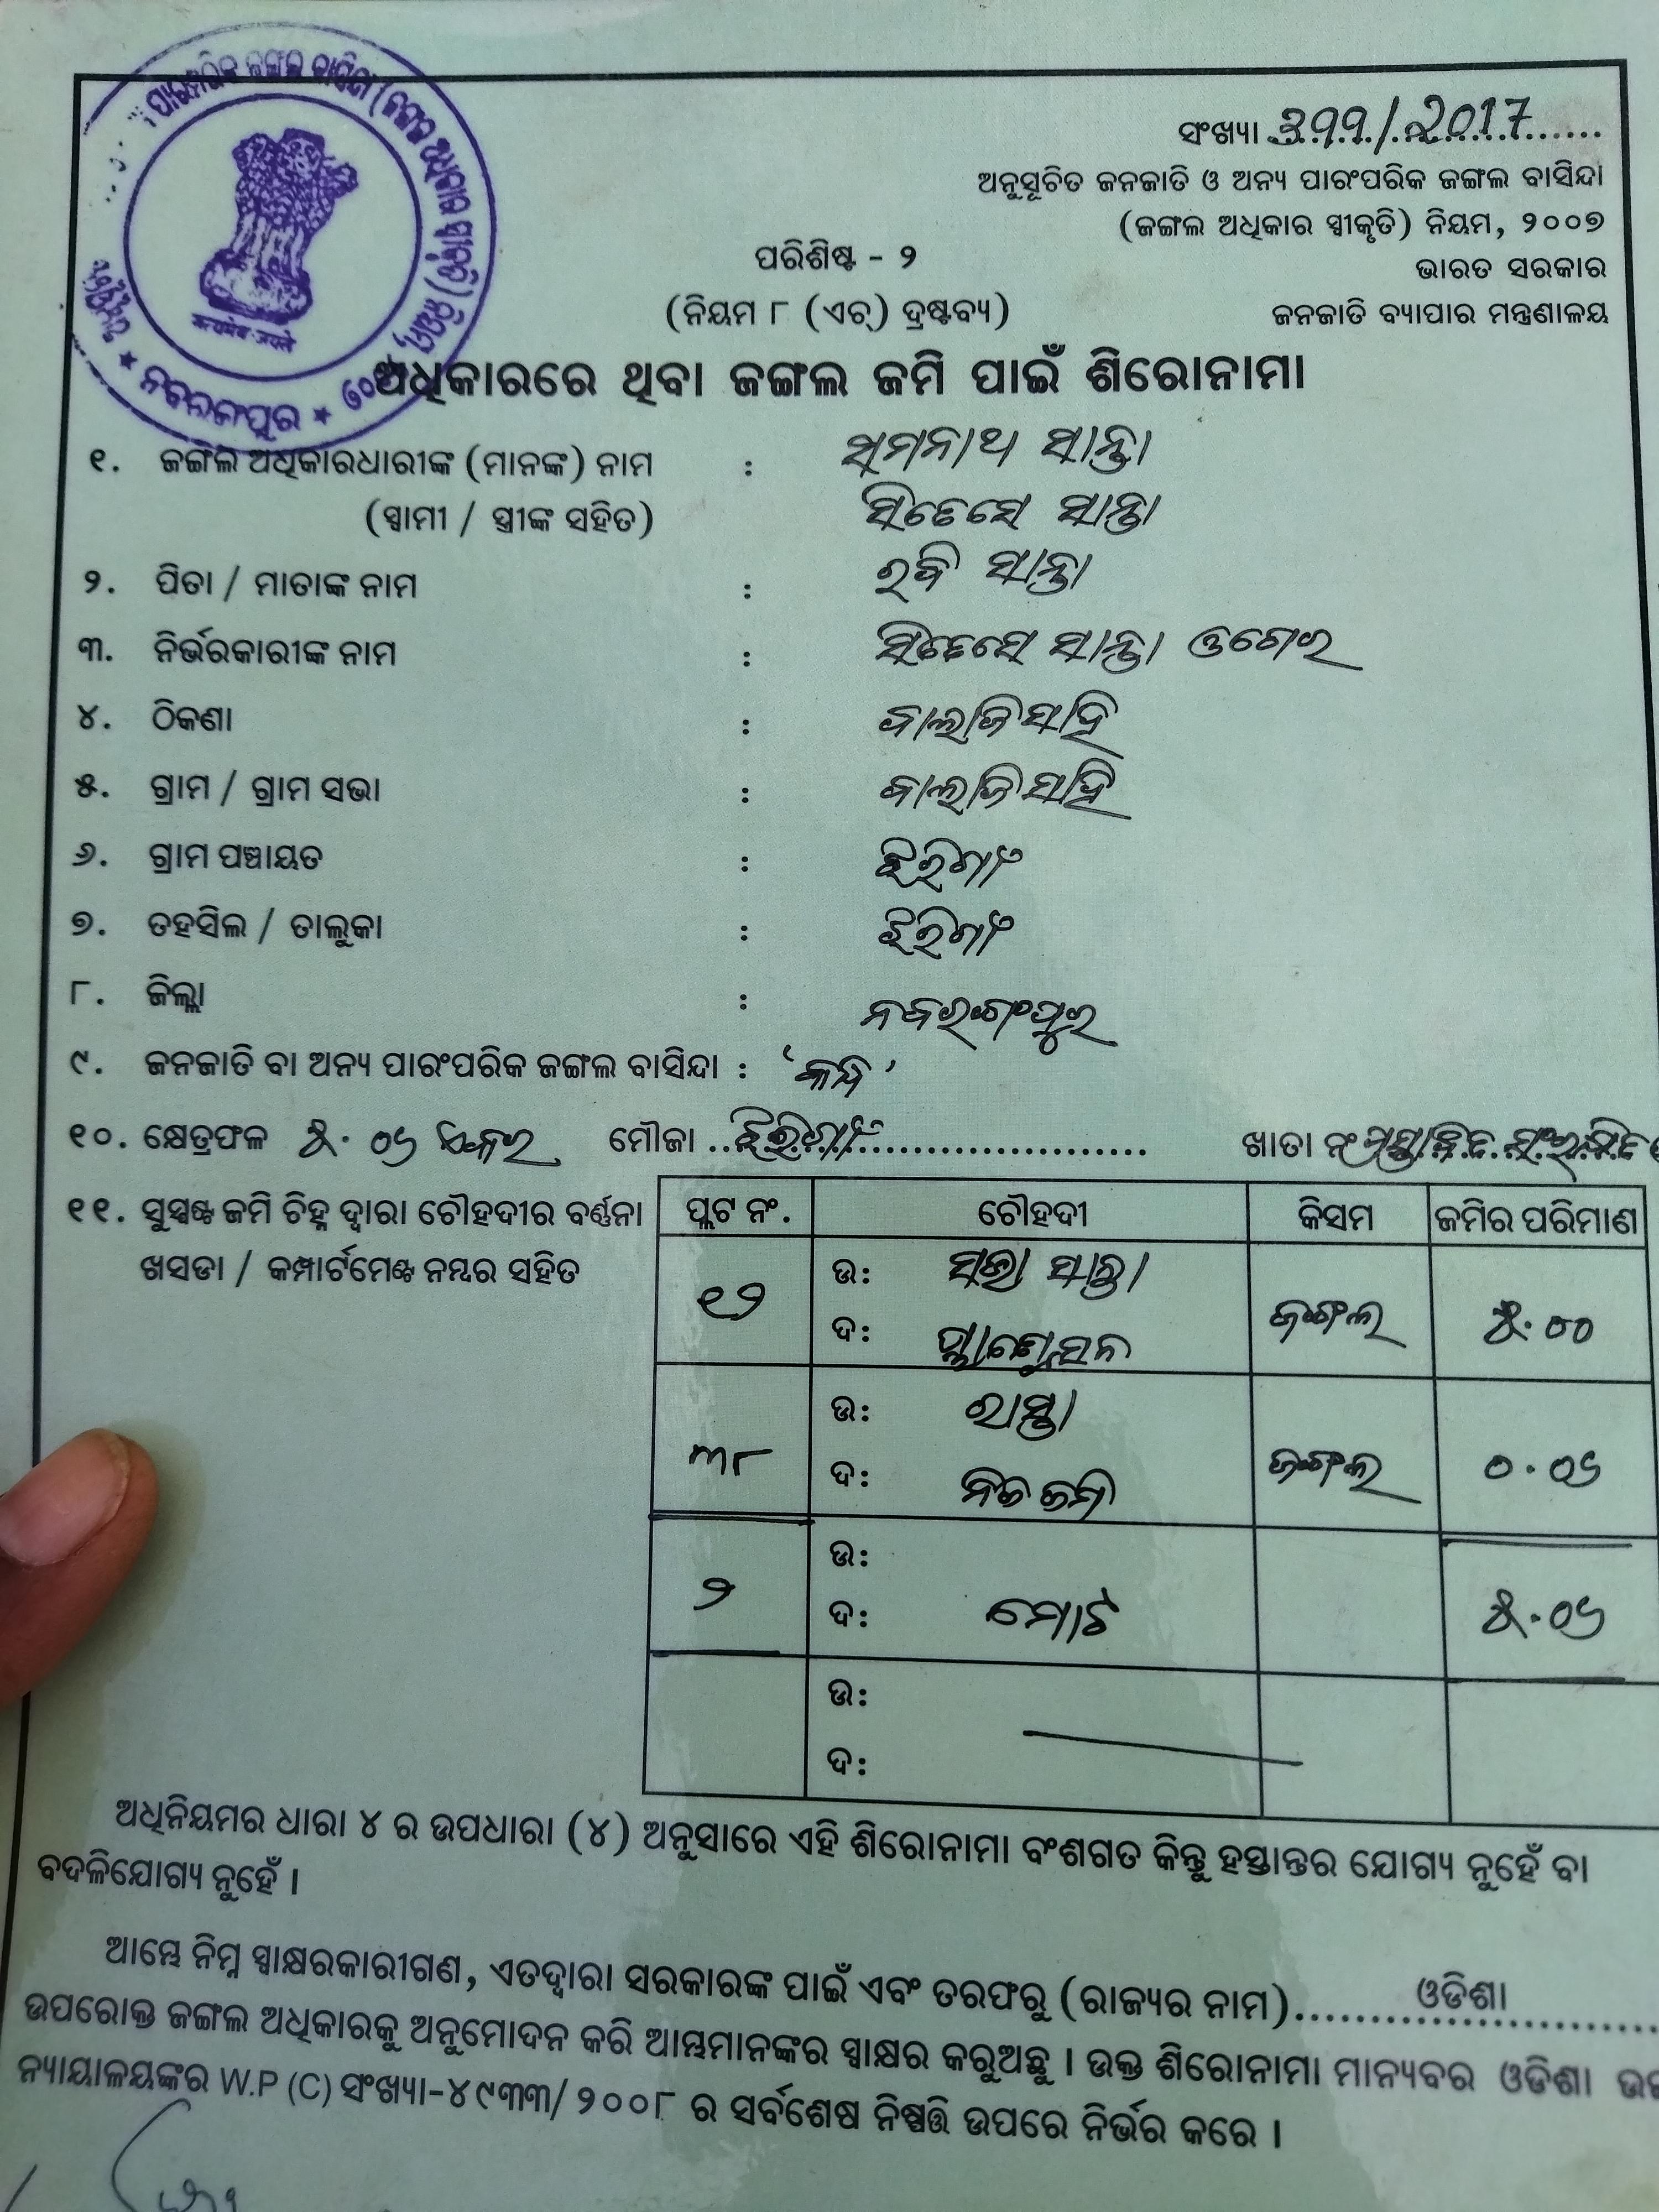 ସଂଖ୍ୟା ୩୭୭/2017
ଅନୁସୂଚିତ ଜନଜାତି ଓ ଅନ୍ୟ ପାରଂପରିକ ଜଙ୍ଗଲ ବାସିନ୍ଦା
(ଜଙ୍ଗଲ ଅଧିକାର ସ୍ୱୀକୃତି) ନିୟମ, ୨୦୦୭
ପରିଶିଷ୍ଟ - ୨
ଭାରତ ସରକାର
(ନିୟମ ୮ (ଏଚ୍) ଦ୍ରଷ୍ଟବ୍ୟ)
ଜନଜାତି ବ୍ୟାପାର ମନ୍ତ୍ରଣାଳୟ
ନବରଙ୍ଗପୁର
ଅଧିକାରରେ ଥିବା ଜଙ୍ଗଲ ଜମି ପାଇଁ ଶିରୋନାମା
୧. ଜଙ୍ଗଲ ଅଧିକାରଧାରୀଙ୍କ (ମାନଙ୍କ) ନାମ : ସମନାଥ ସାନ୍ତା
(ସ୍ୱାମୀ / ସ୍ତ୍ରୀଙ୍କ ସହିତ) ସାନ୍ତା
୨. ପିତା / ମାତାଙ୍କ ନାମ : ରବି ସାନ୍ତା
୩. ନିର୍ଭରକାରୀଙ୍କ ନାମ : ସାନ୍ତା ଓଗେର
୪. ଠିକଣା : ବାଲାଜିସାହି
୫. ଗ୍ରାମ / ଗ୍ରାମ ସଭା : ବାଲାଜିସାହି
୬. ଗ୍ରାମ ପଞ୍ଚାୟତ : ଝରିଗାଁ
୭. ତହସିଲ / ତାଲୁକା : ଝରିଗାଁ
୮. ଜିଲ୍ଲା : ନବରଂଗପୁର
୯. ଜନଜାତି ବା ଅନ୍ୟ ପାରଂପରିକ ଜଙ୍ଗଲ ବାସିନ୍ଦା : 'କନ୍ଧ'
୧୦. କ୍ଷେତ୍ରଫଳ ୫.୦୬ ଏକର ମୌଜା ଝରିଗାଁ ଖାତା ନଂ
୧୧. ସୁସ୍ପଷ୍ଟ ଜମି ଚିହ୍ନ ଦ୍ୱାରା ଚୌହଦୀର ବର୍ଣ୍ଣନା
ଖସଡା / କମ୍ପାର୍ଟମେଣ୍ଟ ନମ୍ବର ସହିତ
ପ୍ଲଟ ନଂ. ଚୌହଦୀ କିସମ ଜମିର ପରିମାଣ
୧୨ ଉ: ସାନ୍ତା ଜଙ୍ଗଲ ୫.୦୦
ଦ: ପ୍ଲାଣ୍ଟେସନ
୩୮ ଉ: ରାସ୍ତା ଜଙ୍ଗଲ ୦.୦୬
ଦ: ନିଜ ଜମି
୨ ଉ: ୫.୦୬
ଦ: ମୋଟ
ଉ:
ଦ:
ଅଧିନିୟମର ଧାରା ୪ ର ଉପଧାରା (୪) ଅନୁସାରେ ଏହି ଶିରୋନାମା ବଂଶଗତ କିନ୍ତୁ ହସ୍ତାନ୍ତର ଯୋଗ୍ୟ ନୁହେଁ ବା
ବଦଳିଯୋଗ୍ୟ ନୁହେଁ ।
ଆମ୍ଭେ ନିମ୍ନ ସ୍ୱାକ୍ଷରକାରୀଗଣ, ଏତଦ୍ୱାରା ସରକାରଙ୍କ ପାଇଁ ଏବଂ ତରଫରୁ (ରାଜ୍ୟର ନାମ) ଓଡିଶା
ଉପରୋକ୍ତ ଜଙ୍ଗଲ ଅଧିକାରକୁ ଅନୁମୋଦନ କରି ଆମ୍ଭମାନଙ୍କର ସ୍ୱାକ୍ଷର କରୁଅଛୁ । ଉକ୍ତ ଶିରୋନାମା ମାନ୍ୟବର ଓଡିଶା
ନ୍ୟାୟାଳୟଙ୍କର W.P (C) ସଂଖ୍ୟା-୪୯୩୩/୨୦୦୮ ର ସର୍ବଶେଷ ନିଷ୍ପତ୍ତି ଉପରେ ନିର୍ଭର କରେ ।